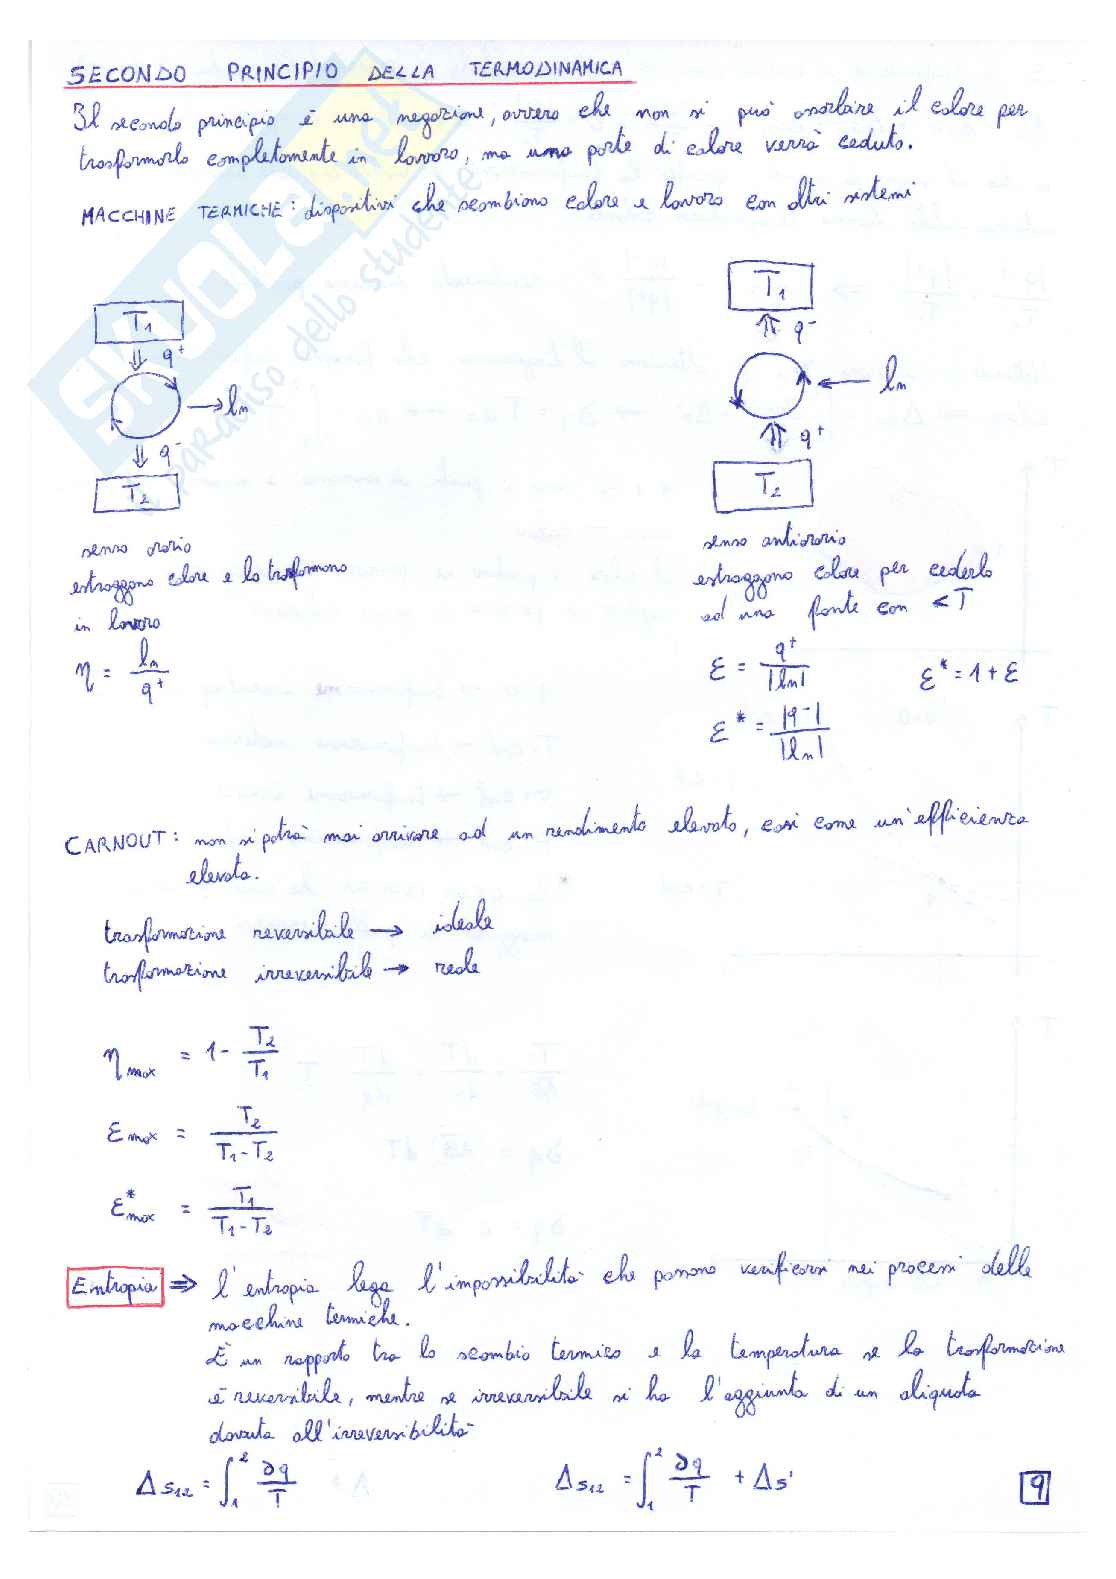 SECONDO PRINCIPIO DELLA TERMODINAMICA
Il secondo principio è una negazione, ovvero che non si può assorbire il calore per
trasformarlo completamente in lavoro, ma una parte di calore verrà ceduto.
MACCHINE TERMICHE: dispositivi che scambiano calore e lavoro con altri sistemi
T₁
q⁺
lₙ
q⁻
T₂
senso orario
estraggono calore e lo trasformano
in lavoro
η = lₙ / q⁺
T₁
q⁻
lₙ
q⁺
T₂
senso antiorario
estraggono calore per cederlo
ad una fonte con < T
ε = q⁺ / |lₙ|
ε* = 1 + ε
ε* = |q⁻| / |lₙ|
CARNOUT: non si potrà mai arrivare ad un rendimento elevato, così come un'efficienza
elevata.
trasformazione reversibile → ideale
trasformazione irreversibile → reale
η max = 1 - T₂ / T₁
ε max = T₂ / (T₁ - T₂)
ε* max = T₁ / (T₁ - T₂)
Entropia ⇒ l'entropia lega l'impossibilità che possono verificarsi nei processi delle
macchine termiche.
È un rapporto tra lo scambio termico e la temperatura se la trasformazione
è reversibile, mentre se irreversibile si ha l'aggiunta di un aliquota
dovuta all'irreversibilità
Δs₁₂ = ∫₁² ∂q / T
Δs₁₂ = ∫₁² ∂q / T + Δs'
9
SKUOLA.net
il paradiso dello studente